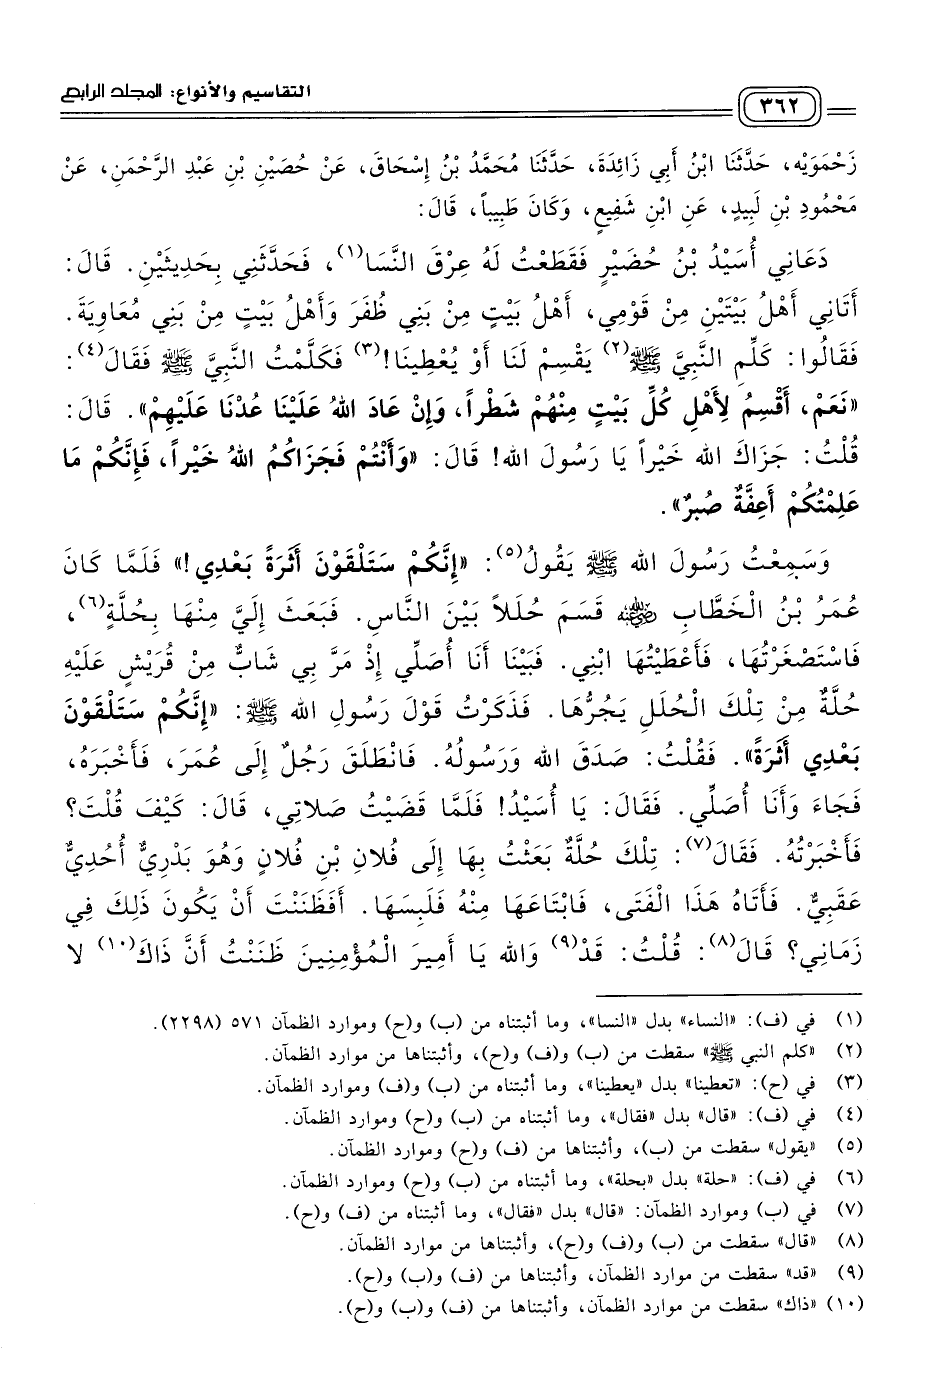 ٣٦٢ التقاسيم والأنواع: المجلد الرابع
زَحْمَوَيْه، حَدَّثَنَا ابْنُ أَبِي زَائِدَةَ، حَدَّثَنَا مُحَمَّدُ بْنُ إِسْحَاقَ، عَنْ حُصَيْنِ بْنِ عَبْدِ الرَّحْمَنِ، عَنْ
مَحْمُودِ بْنِ لَبِيدٍ، عَنِ ابْنِ شَفِيعٍ، وَكَانَ طَبِيباً، قَالَ:
دَعَانِي أُسَيْدُ بْنُ حُضَيْرٍ فَقَطَعْتُ لَهُ عِرْقَ النَّسَا(١)، فَحَدَّثَنِي بِحَدِيثَيْنِ. قَالَ:
أَتَانِي أَهْلُ بَيْتَيْنِ مِنْ قَوْمِي، أَهْلُ بَيْتٍ مِنْ بَنِي ظُفَرَ وَأَهْلُ بَيْتٍ مِنْ بَنِي مُعَاوِيَةَ.
فَقَالُوا: كَلِّمِ النَّبِيَّ ﷺ(٢) يَقْسِمْ لَنَا أَوْ يُعْطِينَا!(٣) فَكَلَّمْتُ النَّبِيَّ ﷺ فَقَالَ(٤):
«نَعَمْ، أَقْسِمُ لِأَهْلِ كُلِّ بَيْتٍ مِنْهُمْ شَطْراً، وَإِنْ عَادَ اللهُ عَلَيْنَا عُدْنَا عَلَيْهِمْ». قَالَ:
قُلْتُ: جَزَاكَ الله خَيْراً يَا رَسُولَ الله! قَالَ: «وَأَنْتُمْ فَجَزَاكُمُ اللهُ خَيْراً، فَإِنَّكُمْ مَا
عَلِمْتُكُمْ أَعِفَّةٌ صُبرٌ».
وَسَمِعْتُ رَسُولَ الله ﷺ يَقُولُ(٥): «إِنَّكُمْ سَتَلْقَوْنَ أَثَرَةً بَعْدِي!» فَلَمَّا كَانَ
عُمَرُ بْنُ الْخَطَّابِ رضي الله عنه قَسَمَ حُلَلاً بَيْنَ النَّاسِ. فَبَعَثَ إِلَيَّ مِنْهَا بِحُلَّةٍ(٦)،
فَاسْتَصْغَرْتُهَا، فَأَعْطَيْتُهَا ابْنِي. فَبَيْنَا أَنَا أُصَلِّي إِذْ مَرَّ بِي شَابٌّ مِنْ قُرَيْشٍ عَلَيْهِ
حُلَّةٌ مِنْ تِلْكَ الْحُلَلِ يَجُرُّهَا. فَذَكَرْتُ قَوْلَ رَسُولِ الله ﷺ: «إِنَّكُمْ سَتَلْقَوْنَ
بَعْدِي أَثَرَةً». فَقُلْتُ: صَدَقَ الله وَرَسُولُهُ. فَانْطَلَقَ رَجُلٌ إِلَى عُمَرَ، فَأَخْبَرَهُ،
فَجَاءَ وَأَنَا أُصَلِّي. فَقَالَ: يَا أُسَيْدُ! فَلَمَّا قَضَيْتُ صَلاتِي، قَالَ: كَيْفَ قُلْتَ؟
فَأَخْبَرْتُهُ. فَقَالَ(٧): تِلْكَ حُلَّةٌ بَعَثْتُ بِهَا إِلَى فُلانِ بْنِ فُلانٍ وَهُوَ بَدْرِيٌّ أُحُدِيٌّ
عَقَبِيٌّ. فَأَتَاهُ هَذَا الْفَتَى، فَابْتَاعَهَا مِنْهُ فَلَبِسَهَا. أَفَظَنَنْتَ أَنْ يَكُونَ ذَلِكَ فِي
زَمَانِي؟ قَالَ(٨): قُلْتُ: قَدْ(٩) وَالله يَا أَمِيرَ الْمُؤْمِنِينَ ظَنَنْتُ أَنَّ ذَاكَ(١٠) لا
(١) في (ف): «النساء» بدل «النسا»، وما أثبتناه من (ب) و(ح) وموارد الظمآن ٥٧١ (٢٢٩٨).
(٢) «كلم النبي ﷺ» سقطت من (ب) و(ف) و(ح)، وأثبتناها من موارد الظمآن.
(٣) في (ح): «تعطينا» بدل «يعطينا»، وما أثبتناه من (ب) و(ف) وموارد الظمآن.
(٤) في (ف): «قال» بدل «فقال»، وما أثبتناه من (ب) و(ح) وموارد الظمآن.
(٥) «يقول» سقطت من (ب)، وأثبتناها من (ف) و(ح) وموارد الظمآن.
(٦) في (ف): «حلة» بدل «بحلة»، وما أثبتناه من (ب) و(ح) وموارد الظمآن.
(٧) في (ب) وموارد الظمآن: «قال» بدل «فقال»، وما أثبتناه من (ف) و(ح).
(٨) «قال» سقطت من (ب) و(ف) و(ح)، وأثبتناها من موارد الظمآن.
(٩) «قد» سقطت من موارد الظمآن، وأثبتناها من (ف) و(ب) و(ح).
(١٠) «ذاك» سقطت من موارد الظمآن، وأثبتناها من (ف) و(ب) و(ح).